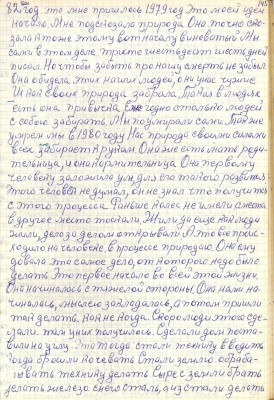 145
8 й год это мне пришлось 1979 год Это моей идеи
начало. Мне подсказала природа Она точно ска-
зала А тоже этому вот началу виноваты мы
сами в этом деле Триста шестьдесят шесть дней
писал. Но чтобы забыть про нашу смерть не забыл
Она обидела этих наших людей, они у нас чужие
И нам своих природа забрала. Такая в людях
есть она привычка ежегодно столько людей
с собою забирать. Мы поумирали сами. Также
умрем мы в 1980 году Нас природа своими силами
всех забирает к рукам Она же есть мать роди-
тельница, и она кормительница Она первому
человеку заложила ум для его такого развитья
Этого человек не думал, он не знал что получится
с этого процесса Раньше колес не имели сместа
в другое место попали. Жили, да еще как люди
жили, дело за делом открывали А это все проис-
ходило на человеке в процессе природою Она ему
давала это самое дело, от которого надо было
делать Это первое начало во всей этой жизни
Она начиналась с тяжелой стороны. Она нам на-
чиналась, мыслею закладалась, а потом пришли
так делать как не когда Скоро люди этого сде-
лали. там у них получилось. Сделали дом поста-
вили на улицу Это тогда стали технику вводить
тогда бросили кочевать Стали землю обраба-
тывать технику делать Сырье с земли брать
делать железо с него сталь, а из стали делать